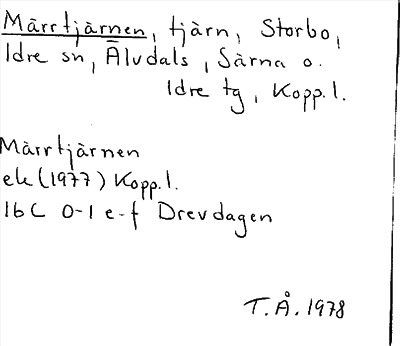 Märrtjärnen, tjärn, Storbo,
Idre sn, Älvdals, Särna o.
Idre tg, Kopp.l.
Märrtjärnen
ek (1977) Kopp.l.
16C 0-1 e-f Drevdagen
T.Å. 1978